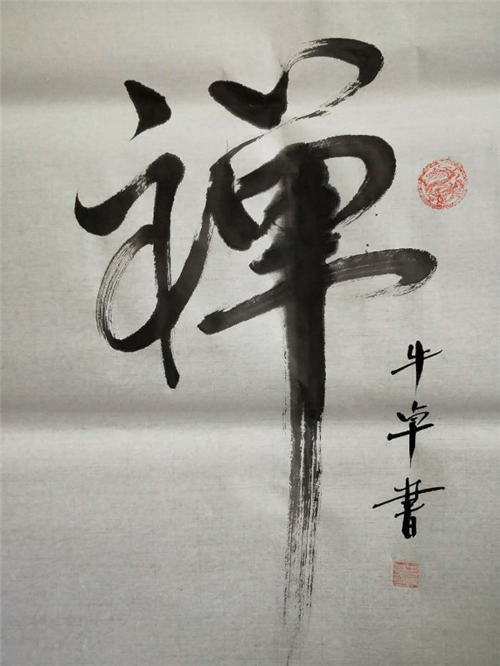 禅
牛卓書